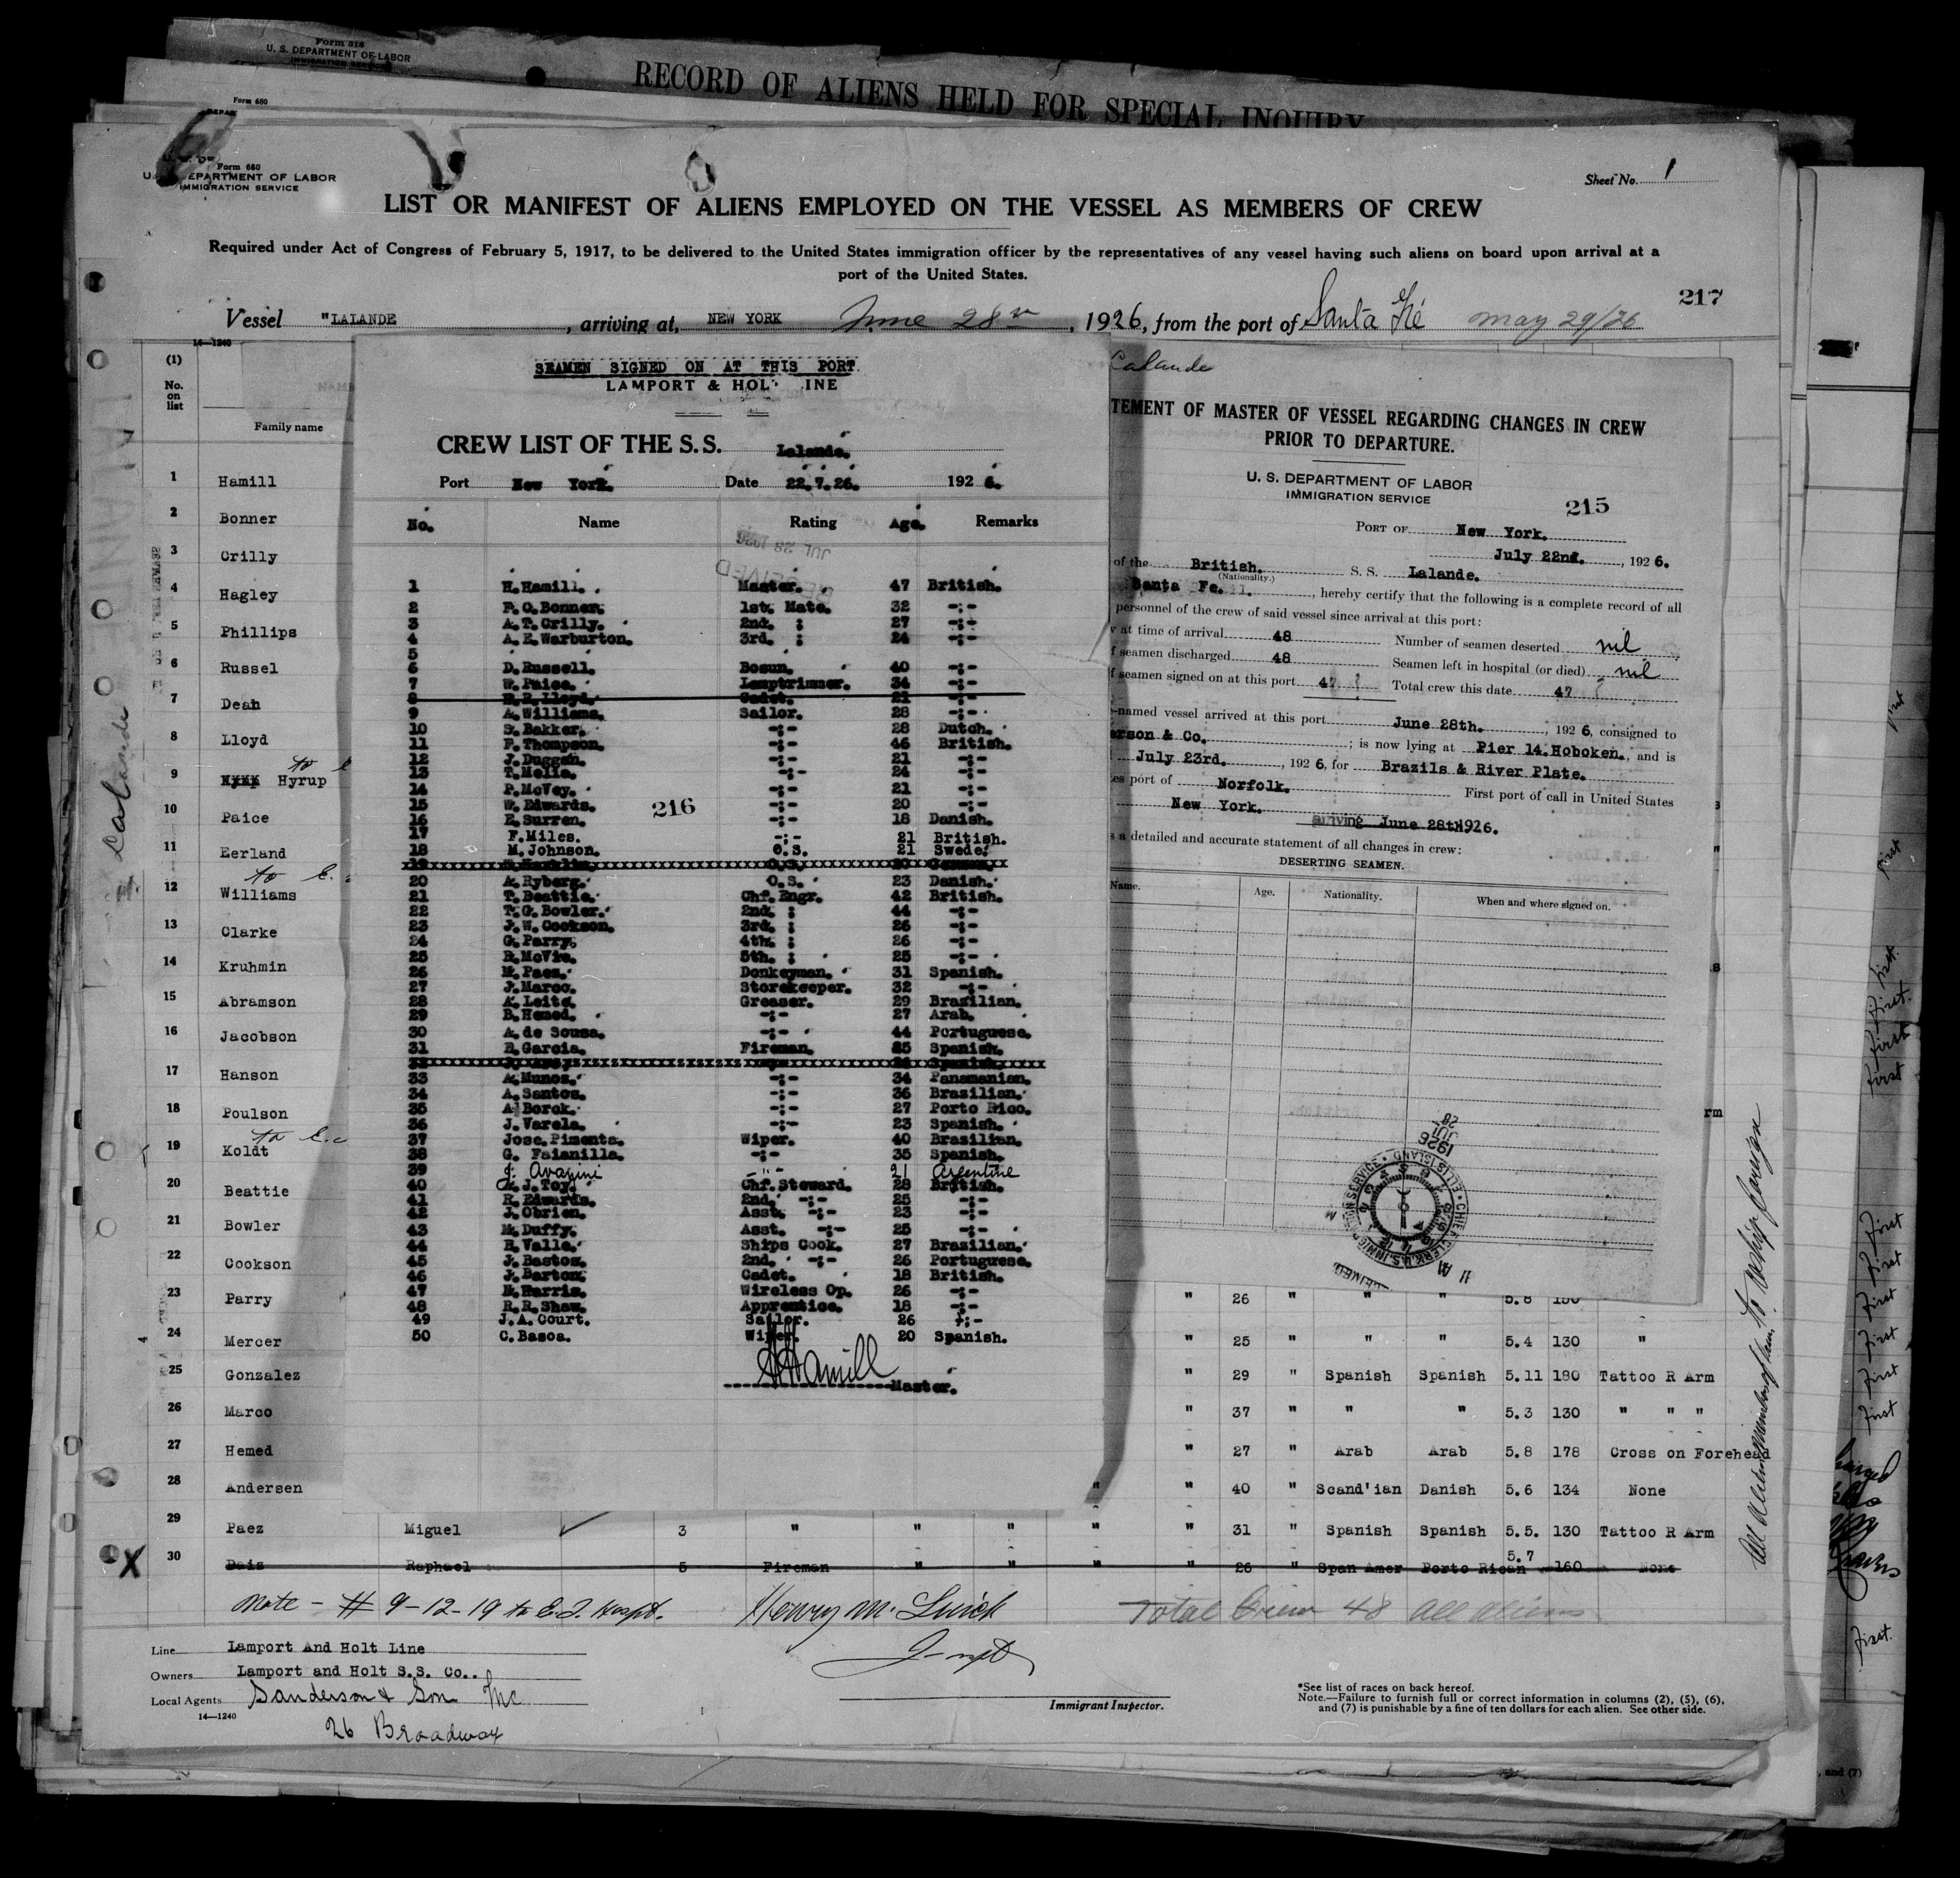 Form 316
U. S. DEPARTMENT OF LABOR
IMMIGRATION SERVICE
RECORD OF ALIENS HELD FOR SPECIAL INQUIRY
Form 680
Form 680
U. S. DEPARTMENT OF LABOR
IMMIGRATION SERVICE
Sheet No. 1
LIST OR MANIFEST OF ALIENS EMPLOYED ON THE VESSEL AS MEMBERS OF CREW
Required under Act of Congress of February 5, 1917, to be delivered to the United States immigration officer by the representatives of any vessel having such aliens on board upon arrival at a
port of the United States.
217
Vessel "LALANDE , arriving at, NEW YORK June 28th , 1926, from the port of Santa Fé May 29/26
14—1240
(1)
No.
on
list
Family name
1 Hamill
2 Bonner
3 Crilly
4 Hagley
5 Phillips
6 Russel
7 Dean
8 Lloyd
9 Hyrup
10 Paice
11 Eerland
12 Williams
13 Clarke
14 Kruhmin
15 Abramson
16 Jacobson
17 Hanson
18 Poulson
19 Koldt
20 Beattie
21 Bowler
22 Cookson
23 Parry
24 Mercer
25 Gonzalez
26 Marco
27 Hemed
28 Andersen
Lalande
SEAMEN SIGNED ON AT THIS PORT
LAMPORT & HOL INE
CREW LIST OF THE S. S. Lalande.
Port New York. Date 22.7.26. 192 6.
No. Name Rating Age. Remarks
JUL 28 1926
RECEIVED
1 H.Hamill. Master. 47 British.
2 F.C.Bonner. 1st. Mate. 32 -:-
3 A.T.Crilly. 2nd. : 27 -:-
4 A.E.Warburton. 3rd. : 24 -:-
5
6 D.Russell. Bosun. 40 -:-
7 W.Paice. Lamptrimmer. 34 -:-
8 Lloyd. Cadet. 21 -:-
9 A.Williams. Sailor. 28 -:-
10 S.Bakker. -:- 28 Dutch.
11 F.Thompson. -:- 46 British.
12 J.Duggan. -:- 21 -:-
13 T.Melia. -:- 24 -:-
14 P.McVey. -:- 21 -:-
15 W.Edwards. -:- 20 -:-
216
16 E.Surren. -:- 18 Danish.
17 F.Miles. -:- 21 British.
18 M.Johnson. O.S. 21 Swede.
20 A.Ryberg. O.S. 23 Danish.
21 T.Beattie. Chf.Engr. 42 British.
22 T.G.Bowler. 2nd. : 44 -:-
23 J.W.Cookson. 3rd. : 26 -:-
24 G.Parry. 4th. : 26 -:-
25 R.McVie. 5th. : 25 -:-
26 M.Paez. Donkeyman. 31 Spanish.
27 J.Marco. Storekeeper. 32 -:-
28 A.Leite. Greaser. 29 Brazilian.
29 B.Hemed. -:- 27 Arab.
30 A.de Sousa. -:- 44 Portuguese.
31 B.Garcia. Fireman. 25 Spanish.
33 A.Munoz. -:- 34 Panamanian.
34 A.Santos. -:- 36 Brazilian.
35 A.Borck. -:- 27 Porto Rico.
36 J.Varela. -:- 23 Spanish.
37 Jose.Pimenta. Wiper. 40 Brasilian.
38 G. Faianilla. -:- 35 Spanish.
39 J. Avagini -"- 21 Argentine
40 J.Toy. Chf.Steward. 28 British.
41 R.Edwards. 2nd. -:- 25 -:-
42 J.Obrien. Asst. -:- 23 -:-
43 M.Duffy. Asst. -:- 25 -:-
44 B.Valle. Ships Cook. 27 Brazilian.
45 J.Bastos. 2nd. -:- 26 Portuguese.
46 J.Barton. Cadet. 18 British.
47 N.Harris. Wireless Op. 26 -:-
48 R.R.Shaw. Apprentice. 18 -:-
49 J.A.Court. Sailor. 26 -:-
50 C.Basoa. Wiper. 20 Spanish.
HHamill
Master.
Lalande
TEMENT OF MASTER OF VESSEL REGARDING CHANGES IN CREW
PRIOR TO DEPARTURE.
U. S. DEPARTMENT OF LABOR
IMMIGRATION SERVICE
215
PORT OF New York.
July 22nd. , 192 6.
of the British. S. S. Lalande.
(Nationality.)
Santa Fe. , hereby certify that the following is a complete record of all
personnel of the crew of said vessel since arrival at this port:
at time of arrival 48 Number of seamen deserted nil
f seamen discharged 48 Seamen left in hospital (or died) nil
f seamen signed on at this port 47 Total crew this date 47
-named vessel arrived at this port June 28th. , 192 6, consigned to
erson & Co. ; is now lying at Pier 14.Hoboken. , and is
July 23rd. , 192 6, for Brazils & River Plate.
tes port of Norfolk. First port of call in United States
New York. arriving June 28th 1926.
s a detailed and accurate statement of all changes in crew:
DESERTING SEAMEN.
Name. Age. Nationality. When and where signed on.
1926 JUL 28
CHIEF CLERK U.S. IMMIGRATION SERVICE ELLIS ISLAND
11 AM
" 26 " " " 5.8 150
" 25 " " " 5.4 130 "
" 29 " Spanish Spanish 5.11 180 Tattoo R Arm
" 37 " " " 5.3 130 " " "
" 27 " Arab Arab 5.8 178 Cross on Forehead
" 40 " Scand'ian Danish 5.6 134 None
29 Paez Miguel 3 " " " " " 31 " Spanish Spanish 5.5. 130 Tattoo R Arm
30 Daiz Raphael 5 Fireman " " " " 26 " Span Amer Porto Rican 5.7 160 None
X
Note - # 9-12-19 to E. I. Hospt. Henry M. Total Crew 48 all aliens
Line Lamport And Holt Line
Owners Lamport and Holt S.S. Co..
Local Agents Sanderson & Son Inc
14—1240
26 Broadway
Inspt
Immigrant Inspector.
*See list of races on back hereof.
Note.—Failure to furnish full or correct information in columns (2), (5), (6),
and (7) is punishable by a fine of ten dollars for each alien. See other side.
first
first
first
first
first
first
first
first
first
first
first
first
first
, and (7)